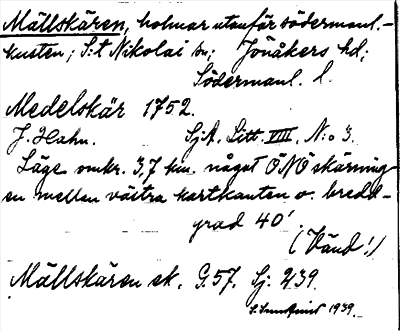 Mällskären, holmar utanför södermanl.-
kusten; S:t Nikolai sn; Jönåkers hd;
Södermanl. l.
Medelskär 1752.
J. Hahn. Sj.A. Litt. VIII, N:o 3.
Läge omkr. 3,7 km. något ONO skärning
en mellan västra kartkanten o. bredd-
grad 40'
(Vänd!)
Mällskären ek. G.57. Sj. 239
1939.